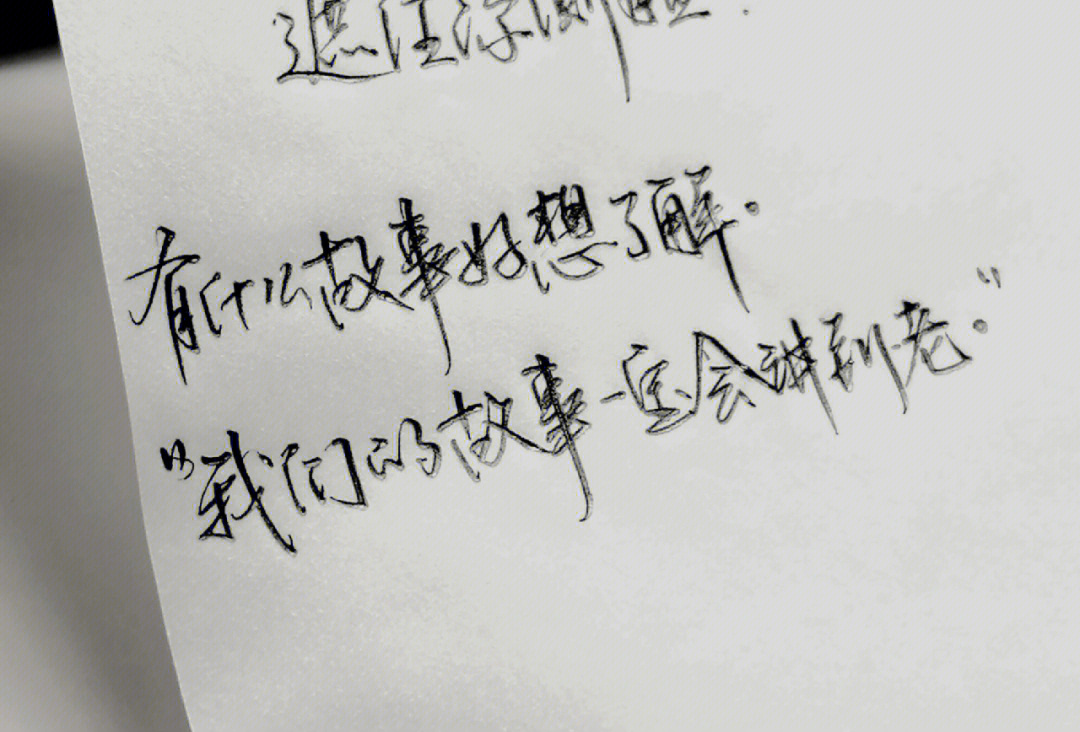 遮住深渊
有什么故事好想了解.
“我们的故事一定会讲到老。”